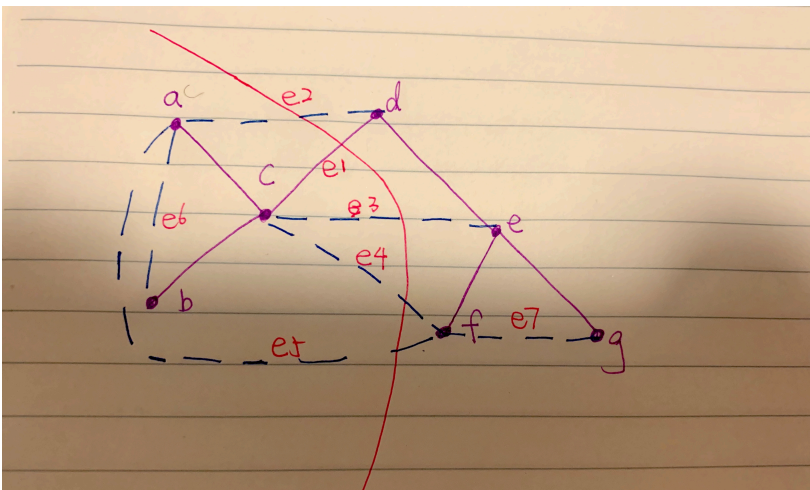 a
e2
d
e1
c
e3
e
e6
e4
b
f
e7
g
e5